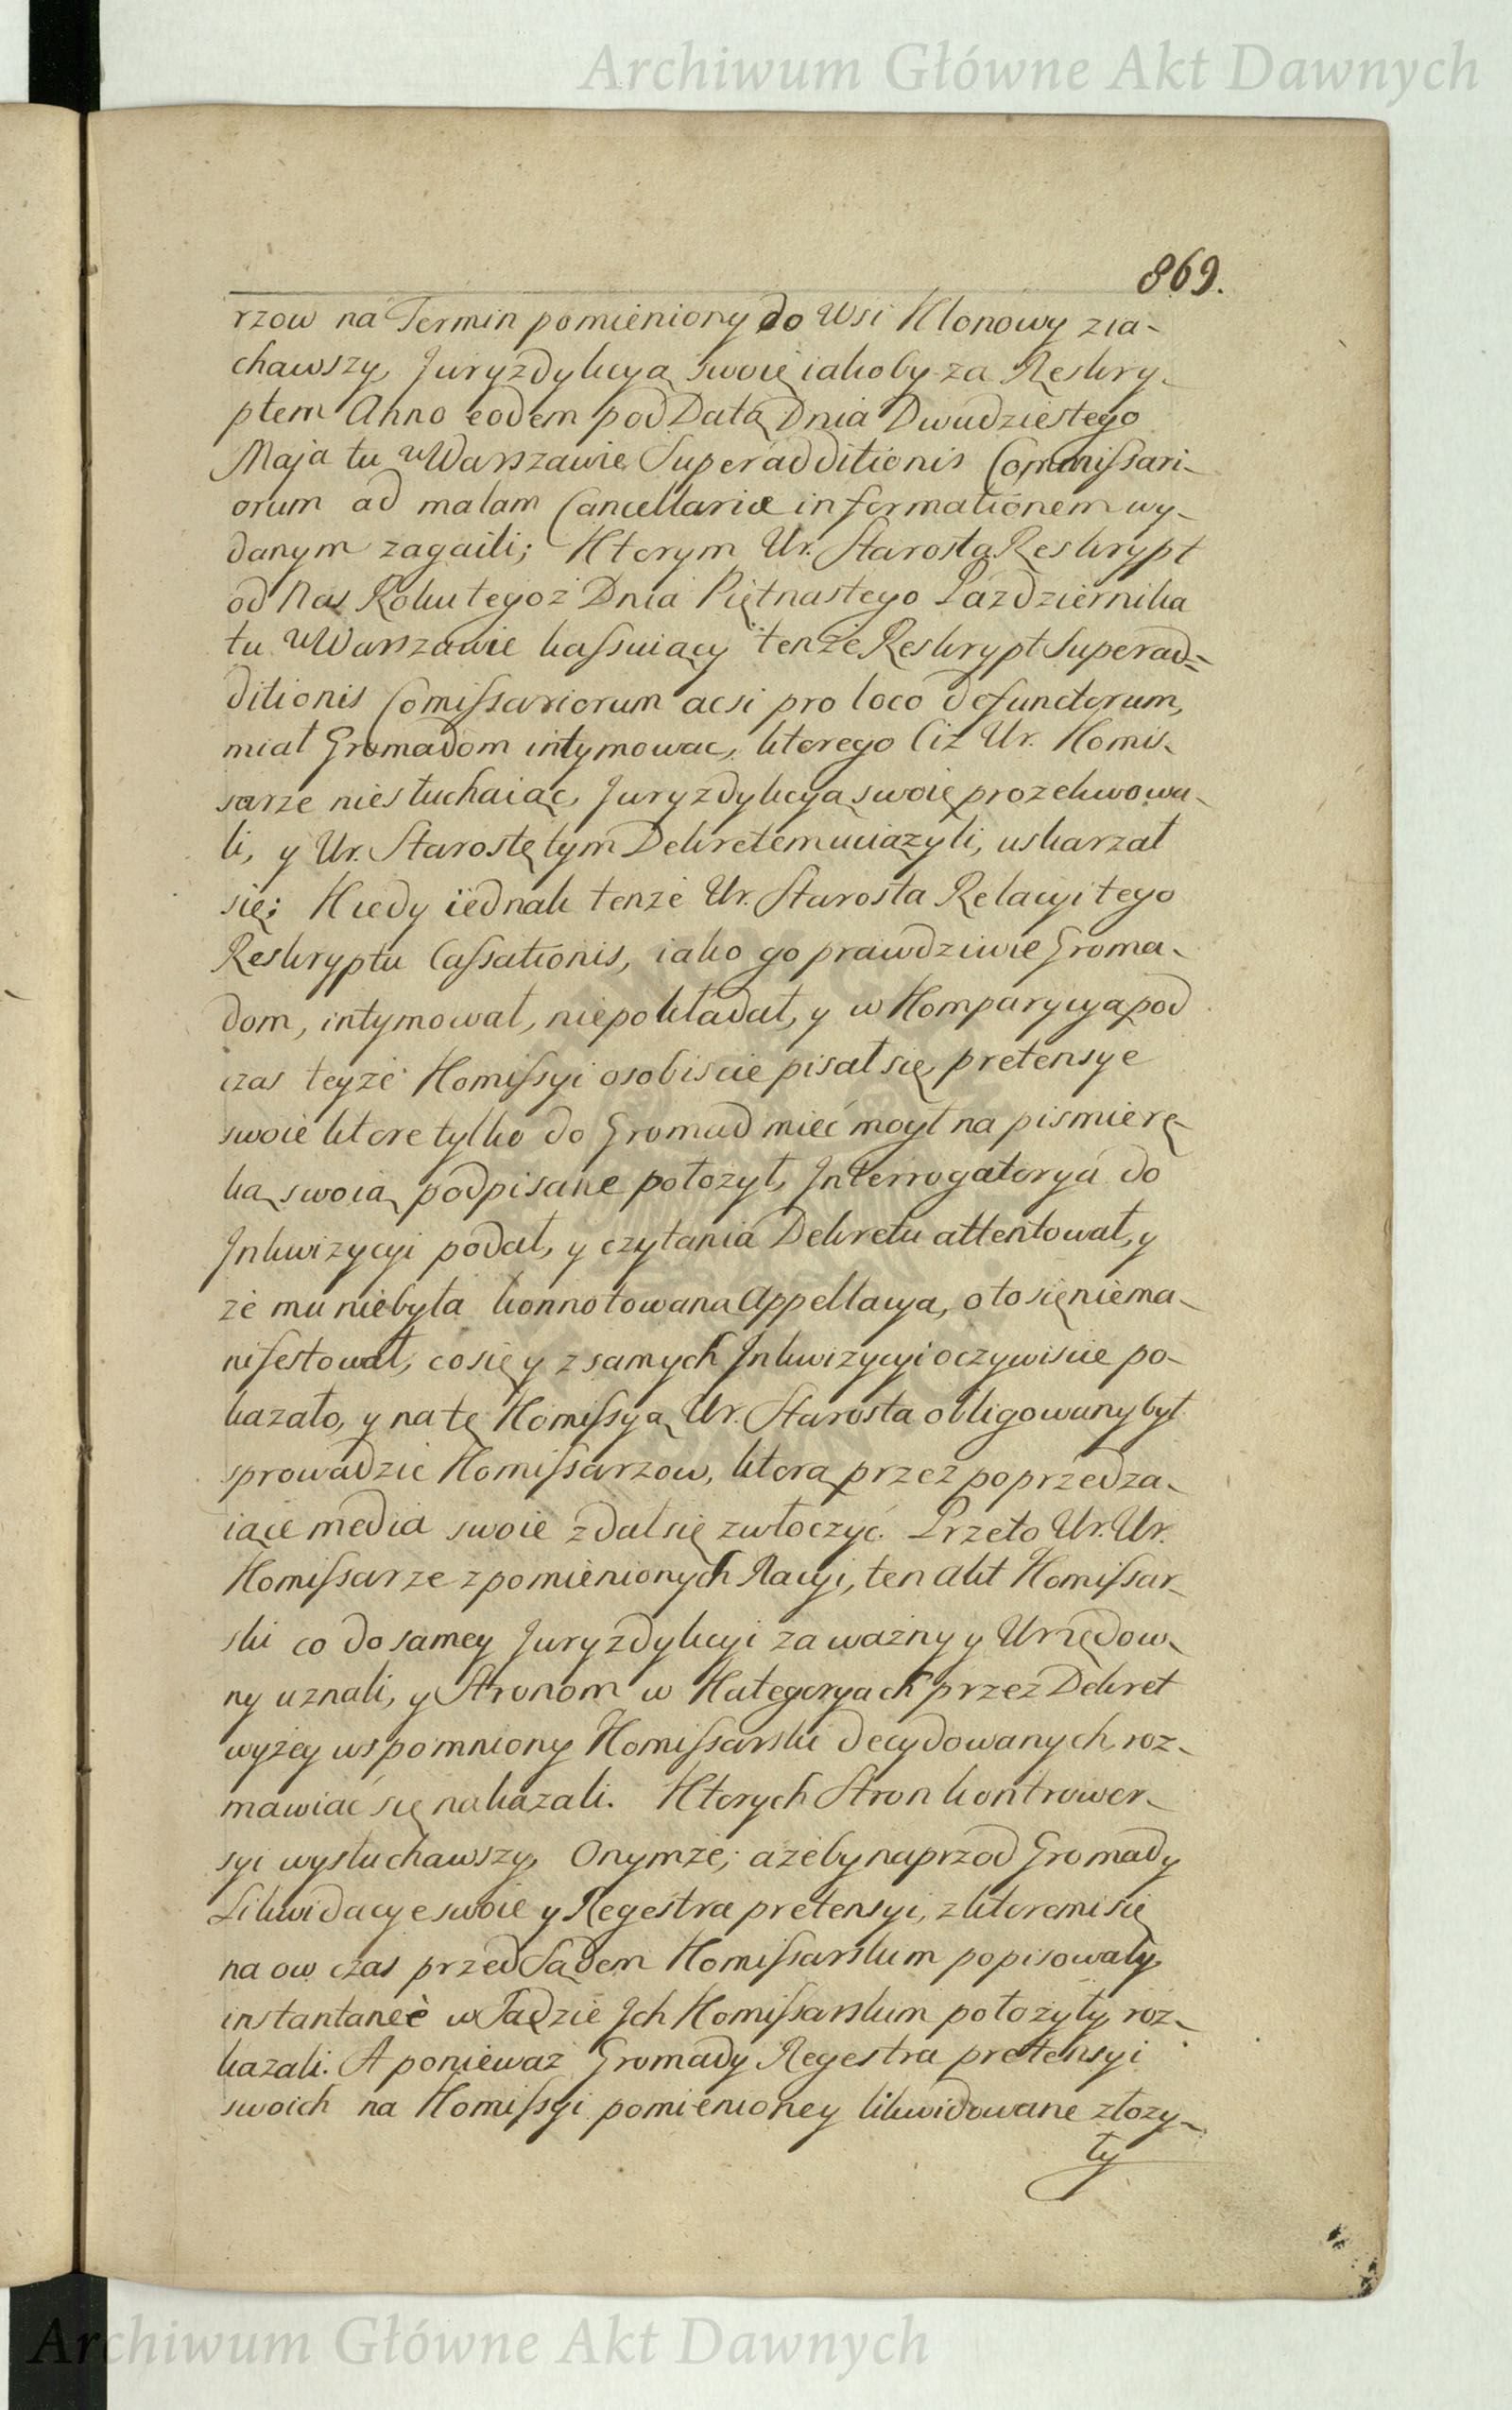 Archiwum Główne Akt Dawnych
869.
rzow na Termin pomieniony do Wsi Klonowy zia-
chawszy, Juryzdykcyą swoię iakoby za Reskry-
ptem Anno eodem pod Datą Dnia Dwudziestego
Maja tu w Warszawie Superadditionis Commissari-
orum ad malam Cancellariæ informationem wy-
danym zagaili; Ktorym Ur. Starosta Reskrypt
od Nas Roku tegoż Dnia Piętnastego Pazdziernika
tu w Warszawie kassuiący tenże Reskrypt Superad=
ditionis Comissariorum acsi pro loco defunctorum,
miał Gromadom intymowac, ktorego Ciż Ur. Komis-
sarze niesłuchaiąc, Juryzdykcyą swoię prozekwowa-
li, y Ur. Starostę tym Dekretem uciązyli, uskarzał
się; Kiedy iednak tenże Ur. Starosta Relacyi tego
Reskryptu Cassationis, iako go prawdziwie Groma-
dom, intymował, niepokładał, y w Komparycyą pod
czas teyże Komissyi osobiscie pisał się, pretensye
swoie ktore tylko do Gromad mieć mogł na pismie rę-
ką swoią podpisane położył, Interrogatorya do
Inkwizycyi podał, y czytania Dekretu attentował, y
że mu niebyła konnotowana Appellacya, o to się niema-
nifestował, co się y z samych Inkwizycyi oczywiscie po-
kazało, y na tę Komissyą Ur. Starosta obligowany był
sprowadzic Komissarzow, ktorą przez poprzedza-
iące media swoie zdał się zwłoczyć. Przeto Ur. Ur.
Komissarze z pomienionych Racyi, ten Akt Komissar-
ski co do samey Juryzdykcyi za ważny y Urzędow-
ny uznali, y Stronom w Kategoryach przez Dekret
wyżey wspomniony Komissarski decydowanych, roz-
mawiać się nakazali. Ktorych Stron kontrower-
syi wysłuchawszy, Onymże; ażeby naprzod Gromady
Likwidacye swoie y Regestra pretensyi, z ktoremi się
na ow czas przed Sądem Komissarskim popisowały,
instantaneè w Sądzie Ich Komissarskim położyły, roz-
kazali. A ponieważ Gromady Regestra pretensyi
swoich na Komissyi pomienioney likwidowane złoży-
ły
Archiwum Główne Akt Dawnych